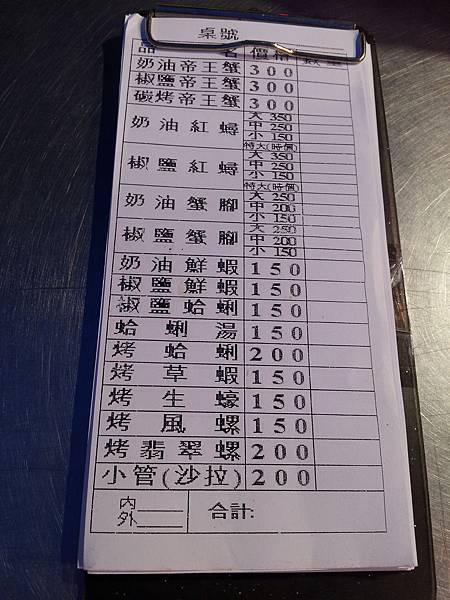 桌號
品 名 價格 數量
奶油帝王蟹 300
椒鹽帝王蟹 300
碳烤帝王蟹 300
奶油紅蟳 大 350
中 250
小 150
特大(時價)
椒鹽紅蟳 大 350
中 250
小 150
特大(時價)
奶油蟹腳 大 250
中 200
小 150
椒鹽蟹腳 大 250
中 200
小 150
奶油鮮蝦 150
椒鹽鮮蝦 150
椒鹽蛤蜊 150
蛤蜊湯 150
烤蛤蜊 200
烤草蝦 150
烤生蠔 150
烤風螺 150
烤翡翠螺 200
小管(沙拉) 200
內
外
合計: